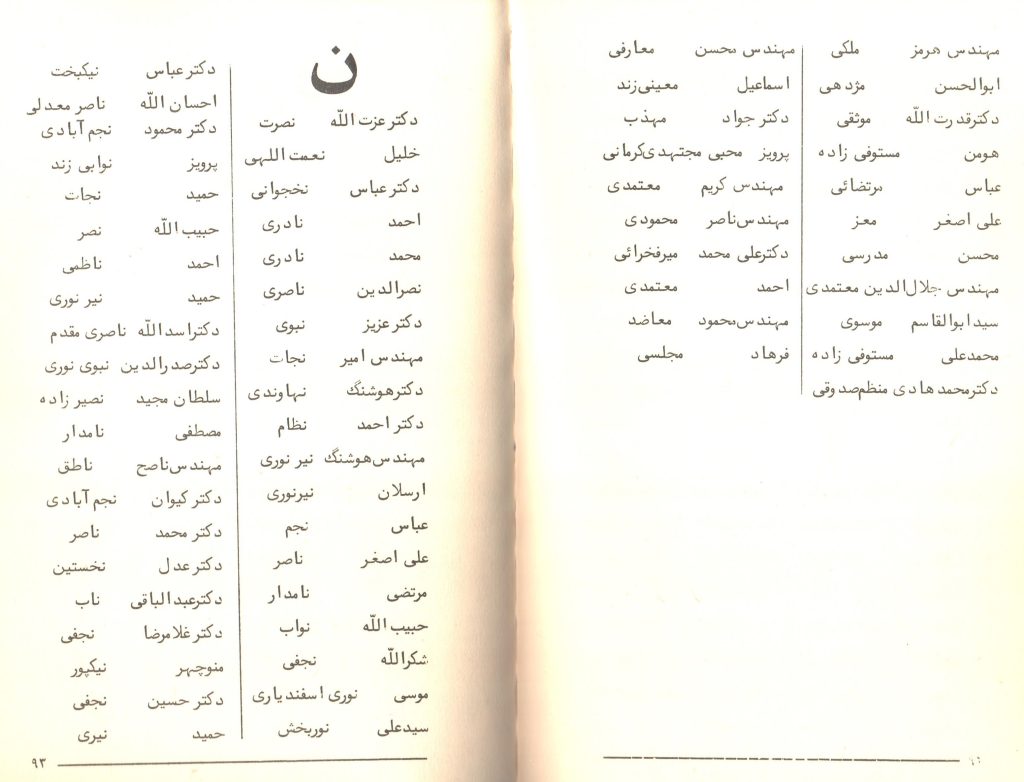 مهندس هرمز ملکی
ابوالحسن مژدهی
دکترقدرت اللّه موثقی
هومن مستوفی زاده
عباس مرتضائی
علی اصغر معز
محسن مدرسی
مهندس جلال‌الدین معتمدی
سیدابوالقاسم موسوی
محمدعلی مستوفی زاده
دکترمحمدهادی منظم‌صدوقی
مهندس محسن معارفی
اسماعیل معینی‌زند
دکتر جواد مهذب
پرویز محبی مجتهدی‌کرمانی
مهندس کریم معتمدی
مهندس‌ناصر محمودی
دکترعلی محمد میرفخرائی
احمد معتمدی
مهندس‌محمود معاضد
فرهاد مجلسی
ن
دکترعزت اللّه نصرت
خلیل نعمت اللهی
دکترعباس نخجوانی
احمد نادری
محمد نادری
نصرالدین ناصری
دکترعزیز نبوی
مهندس امیر نجات
دکترهوشنگ نهاوندی
دکتر احمد نظام
مهندس‌هوشنگ نیر نوری
ارسلان نیرنوری
عباس نجم
علی اصغر ناصر
مرتضی نامدار
حبیب‌اللّه نواب
شکراللّه نجفی
موسی نوری اسفندیاری
سیدعلی نوربخش
دکترعباس نیکبخت
احسان اللّه ناصر معدلی
دکتر محمود نجم‌آبادی
پرویز نوابی زند
حمید نجات
حبیب‌اللّه نصر
احمد ناظمی
حمید نیر نوری
دکتراسداللّه ناصری مقدم
دکترصدرالدین نبوی نوری
سلطان مجید نصیرزاده
مصطفی نامدار
مهندس‌ناصح ناطق
دکتر کیوان نجم‌آبادی
دکتر محمد ناصر
دکترعدل نخستین
دکترعبدالباقی ناب
دکترغلامرضا نجفی
منوچهر نیکپور
دکتر حسین نجفی
حمید نیری
۹۳